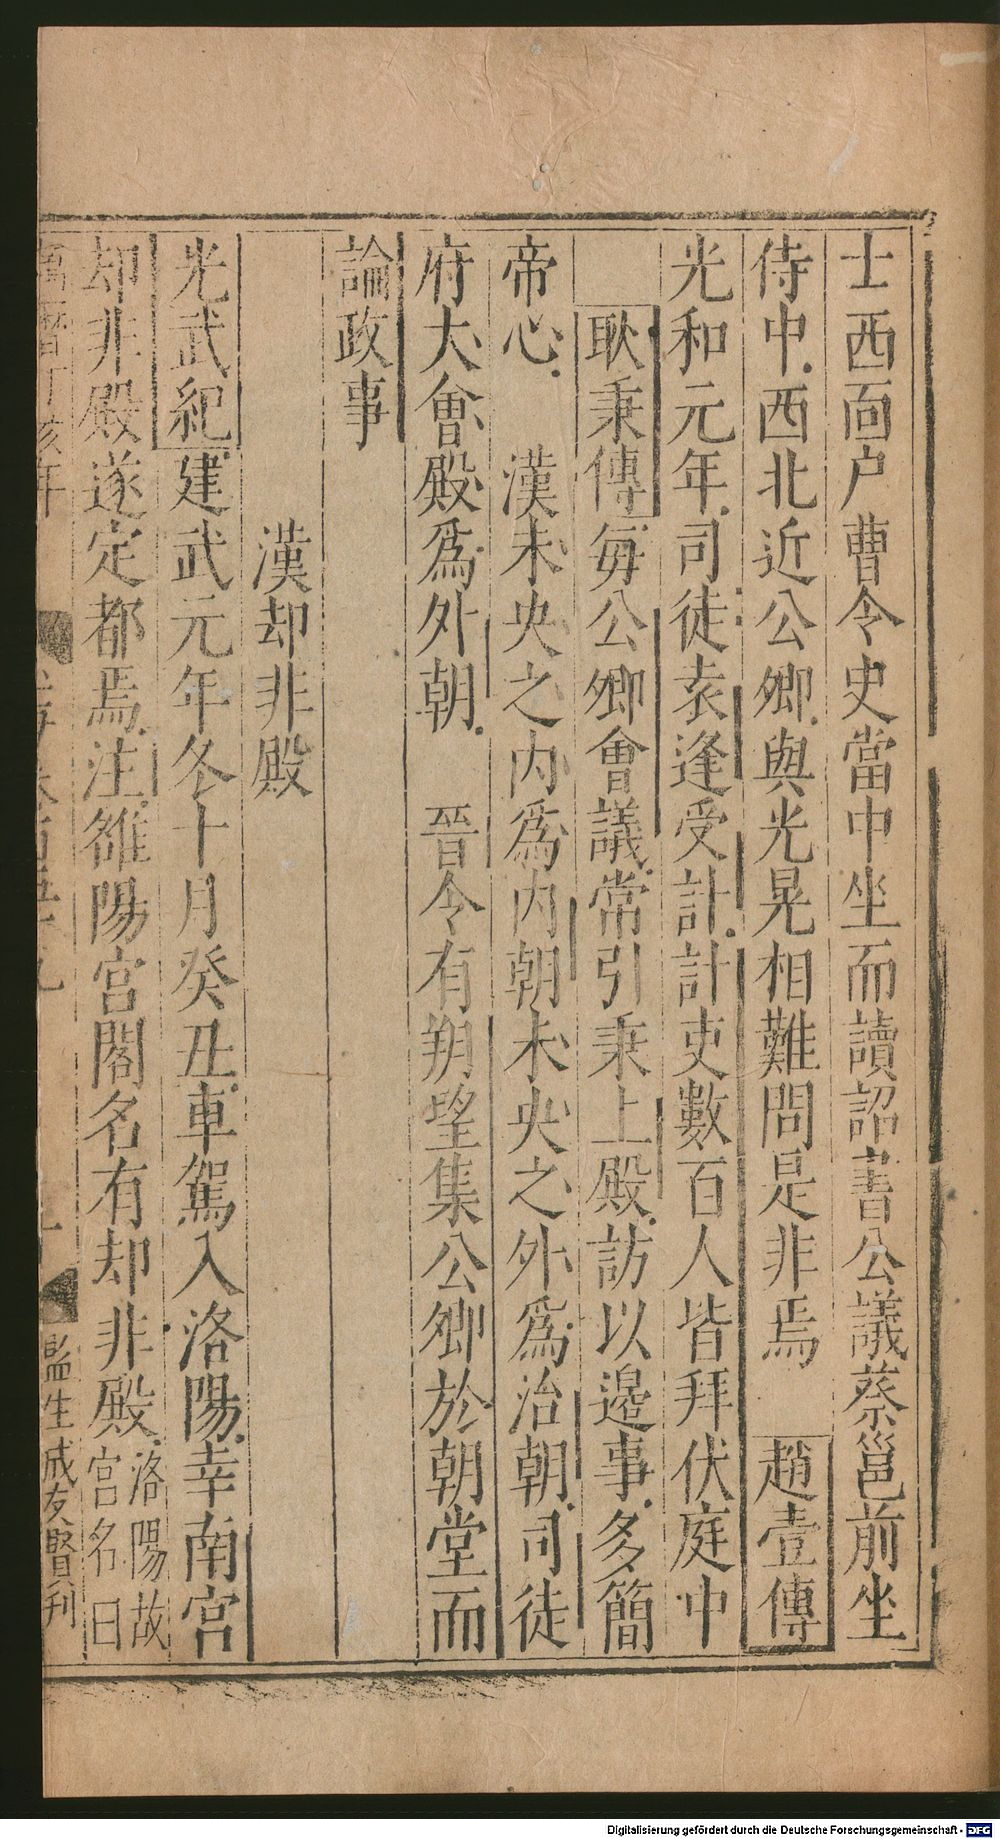 士西面户曹令史當中坐而讀詔書公議蔡邕前坐
侍中西北近公卿與光晃相難問是非焉　趙壹傳
光和元年司徒袁逢受計計吏數百人皆拜伏庭中
耿秉傳每公卿會議常引秉上殿訪以邊事多簡
帝心　漢未央之内爲内朝未央之外爲治朝司徒
府大會殿爲外朝　晉令有朔望集公卿於朝堂而
論政事
漢却非殿
光武紀建武元年冬十月癸丑車駕入洛陽幸南宫
却非殿遂定都焉注雒陽宫閣名有却非殿洛陽故宫名曰
萬曆丁亥年
監生戚友賢刋
Digitalisierung gefördert durch die Deutsche Forschungsgemeinschaft - DFG